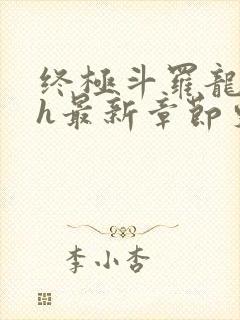 终極斗羅龍
h最新章節
李小杏